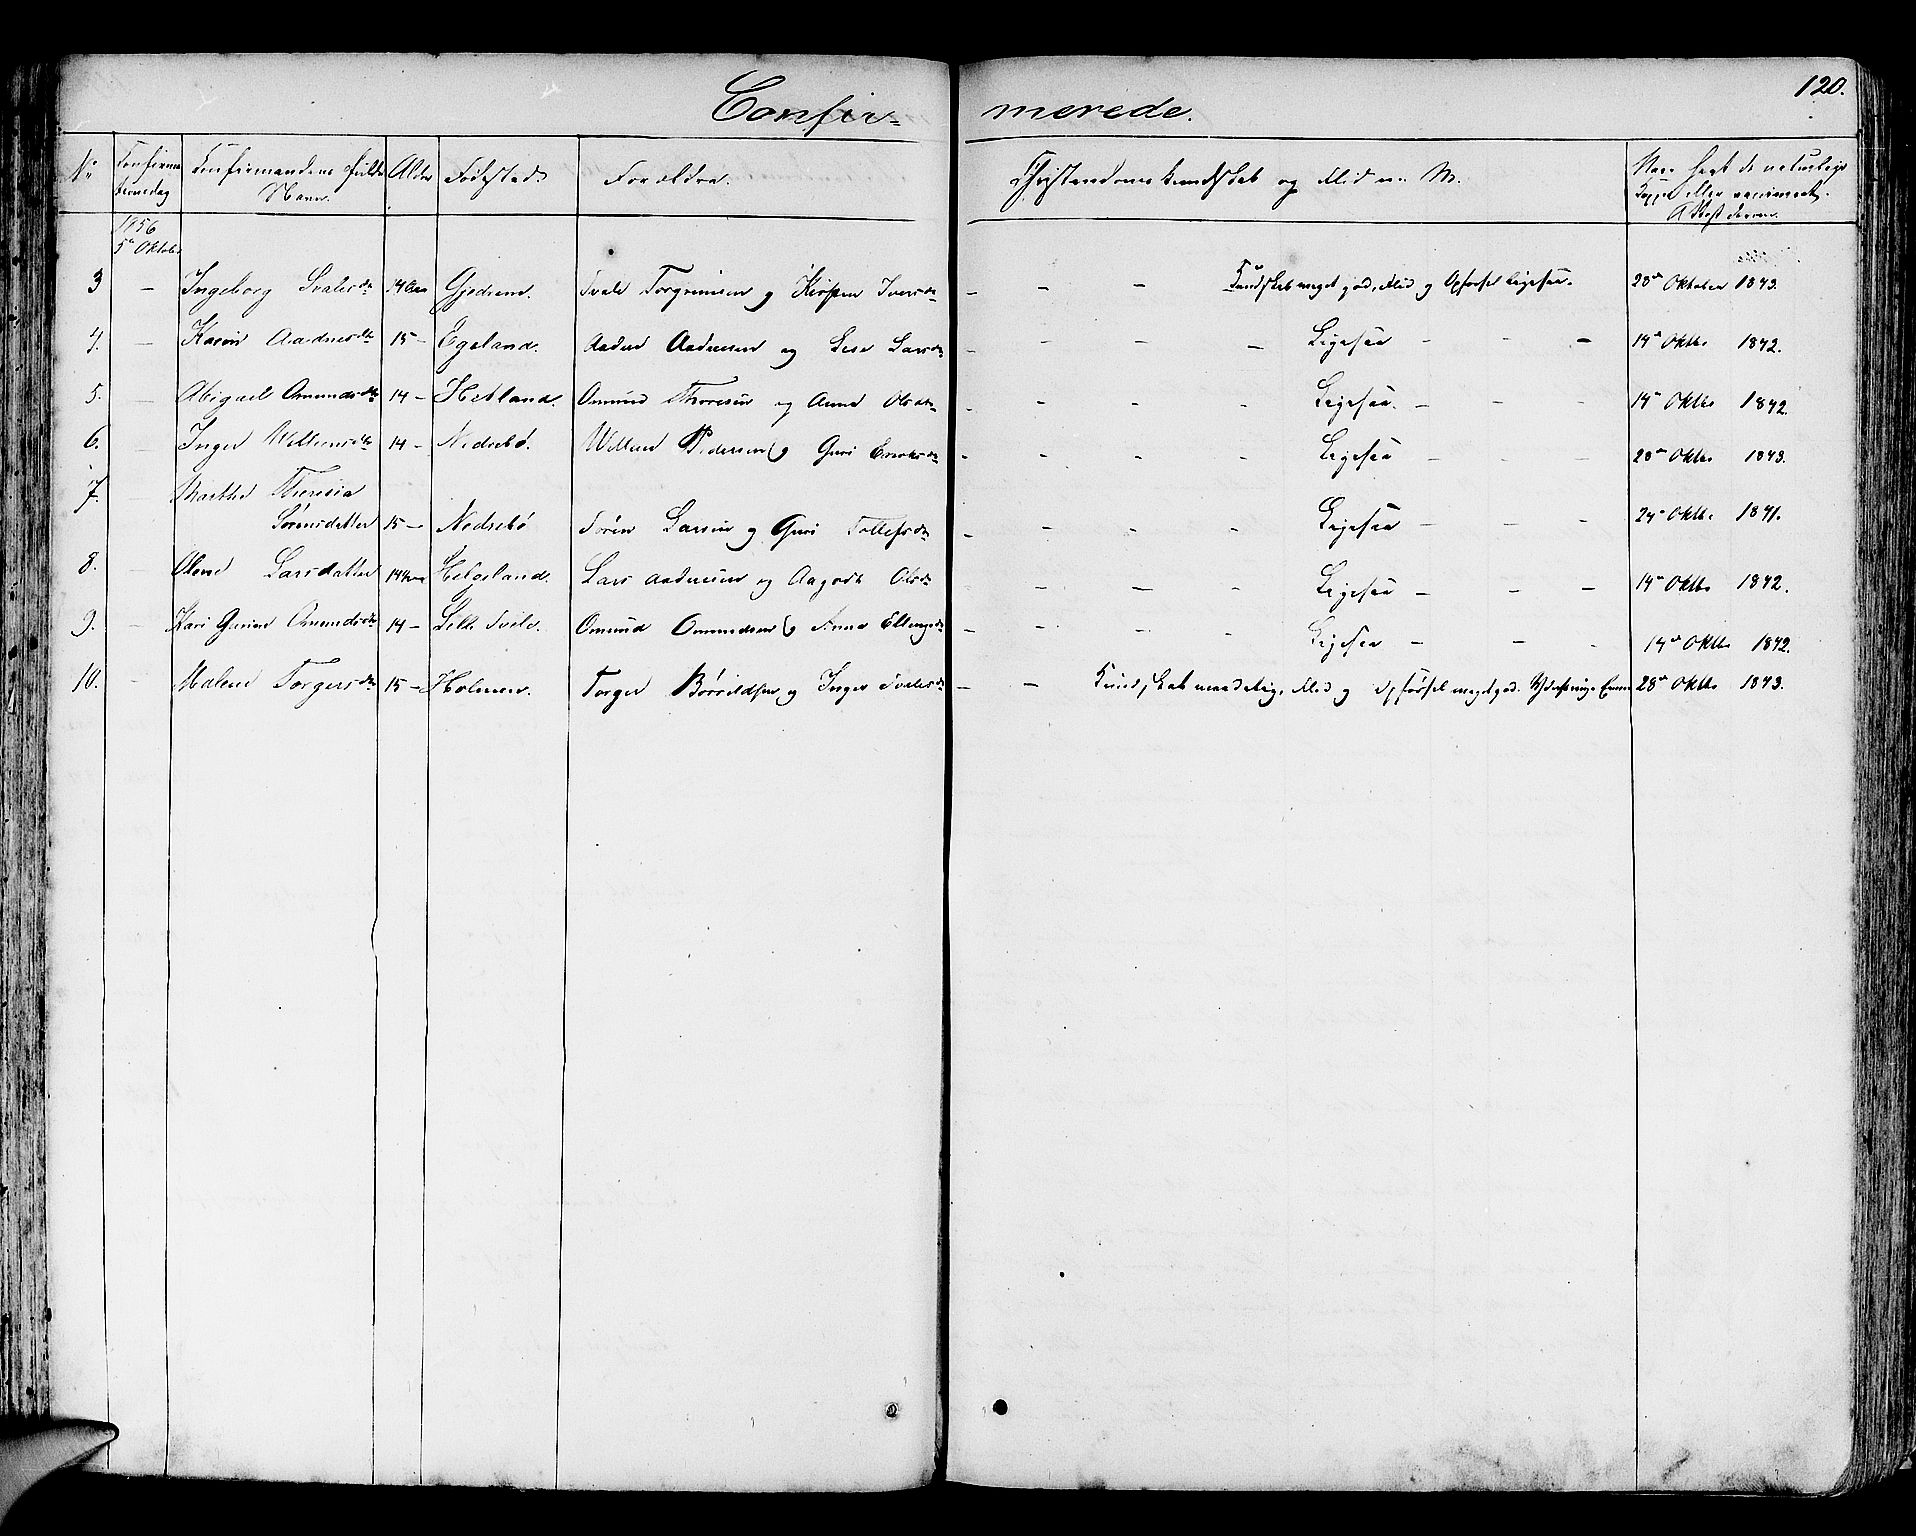 Confir= merede.
120.
No Confirma tionsdag Confirmandens fulde Navn. Alder Fødested. Forældre. Christendomskundskab og Flid m. M. Naar havt de naturlige Kopper eller vaccineret. Attest derom.
1856
5te Oktober
3 – Ingeborg Svalesdtr 14 Aar Gjedrem. Svale Torgrimsen og Kirsten Iversdtr – – – Kundskab meget god, Flid og Opførsel ligesaa. 28de Oktober 1843.
4. – Karin Aadnesdtr 15 – Egeland. Aaden Aadnesen og Lise Larsdtr – – – – Ligesaa – – – 14de Oktbr 1842.
5. – Abigael Omundsdtr 14 – Hetland. Omund Thoresen og Anne Olsdtr – – – – Ligesaa. – – – 14de Oktbr 1842.
6. – Inger Willumsdtr 14 – Nedrebø. Willum Pedersen og Guri dtr – – – – Ligesaa – – – 28de Oktbr 1843.
7. – Marthe Theresia
Sørensdatter 15 – Nedrebø Søren Larsen og Guri Tollefsdtr – – – – Ligesaa – – – 24de Oktbr. 1841.
8. – Olene Larsdatter 14 Aar Helgeland. Lars Aadnesen og Aagodt Olsdtr – – – Ligesaa – – – 14de Oktbr 1842.
9. – Kari Gurine Omundsdtr 14 – Lille Svele. Omund Omundsen og Anne dtr – – – – Ligesaa – – – 14de Oktbr 1842.
10. – Malene Torgersdtr 15 – Holmen. Torger og Inger Svalesdtr – – Kundskab maadelig, Flid og Opførsel meget god. 28de Oktbr 1843.